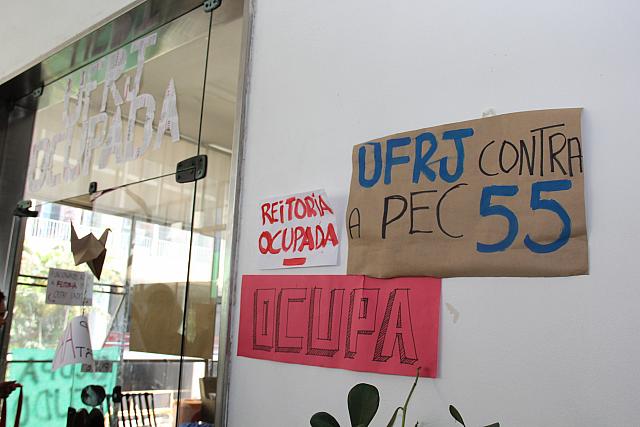 UFRJ
OCUPADA
REITORIA
OCUPADA
UFRJ CONTRA
A PEC 55
OCUPA
REITORIA